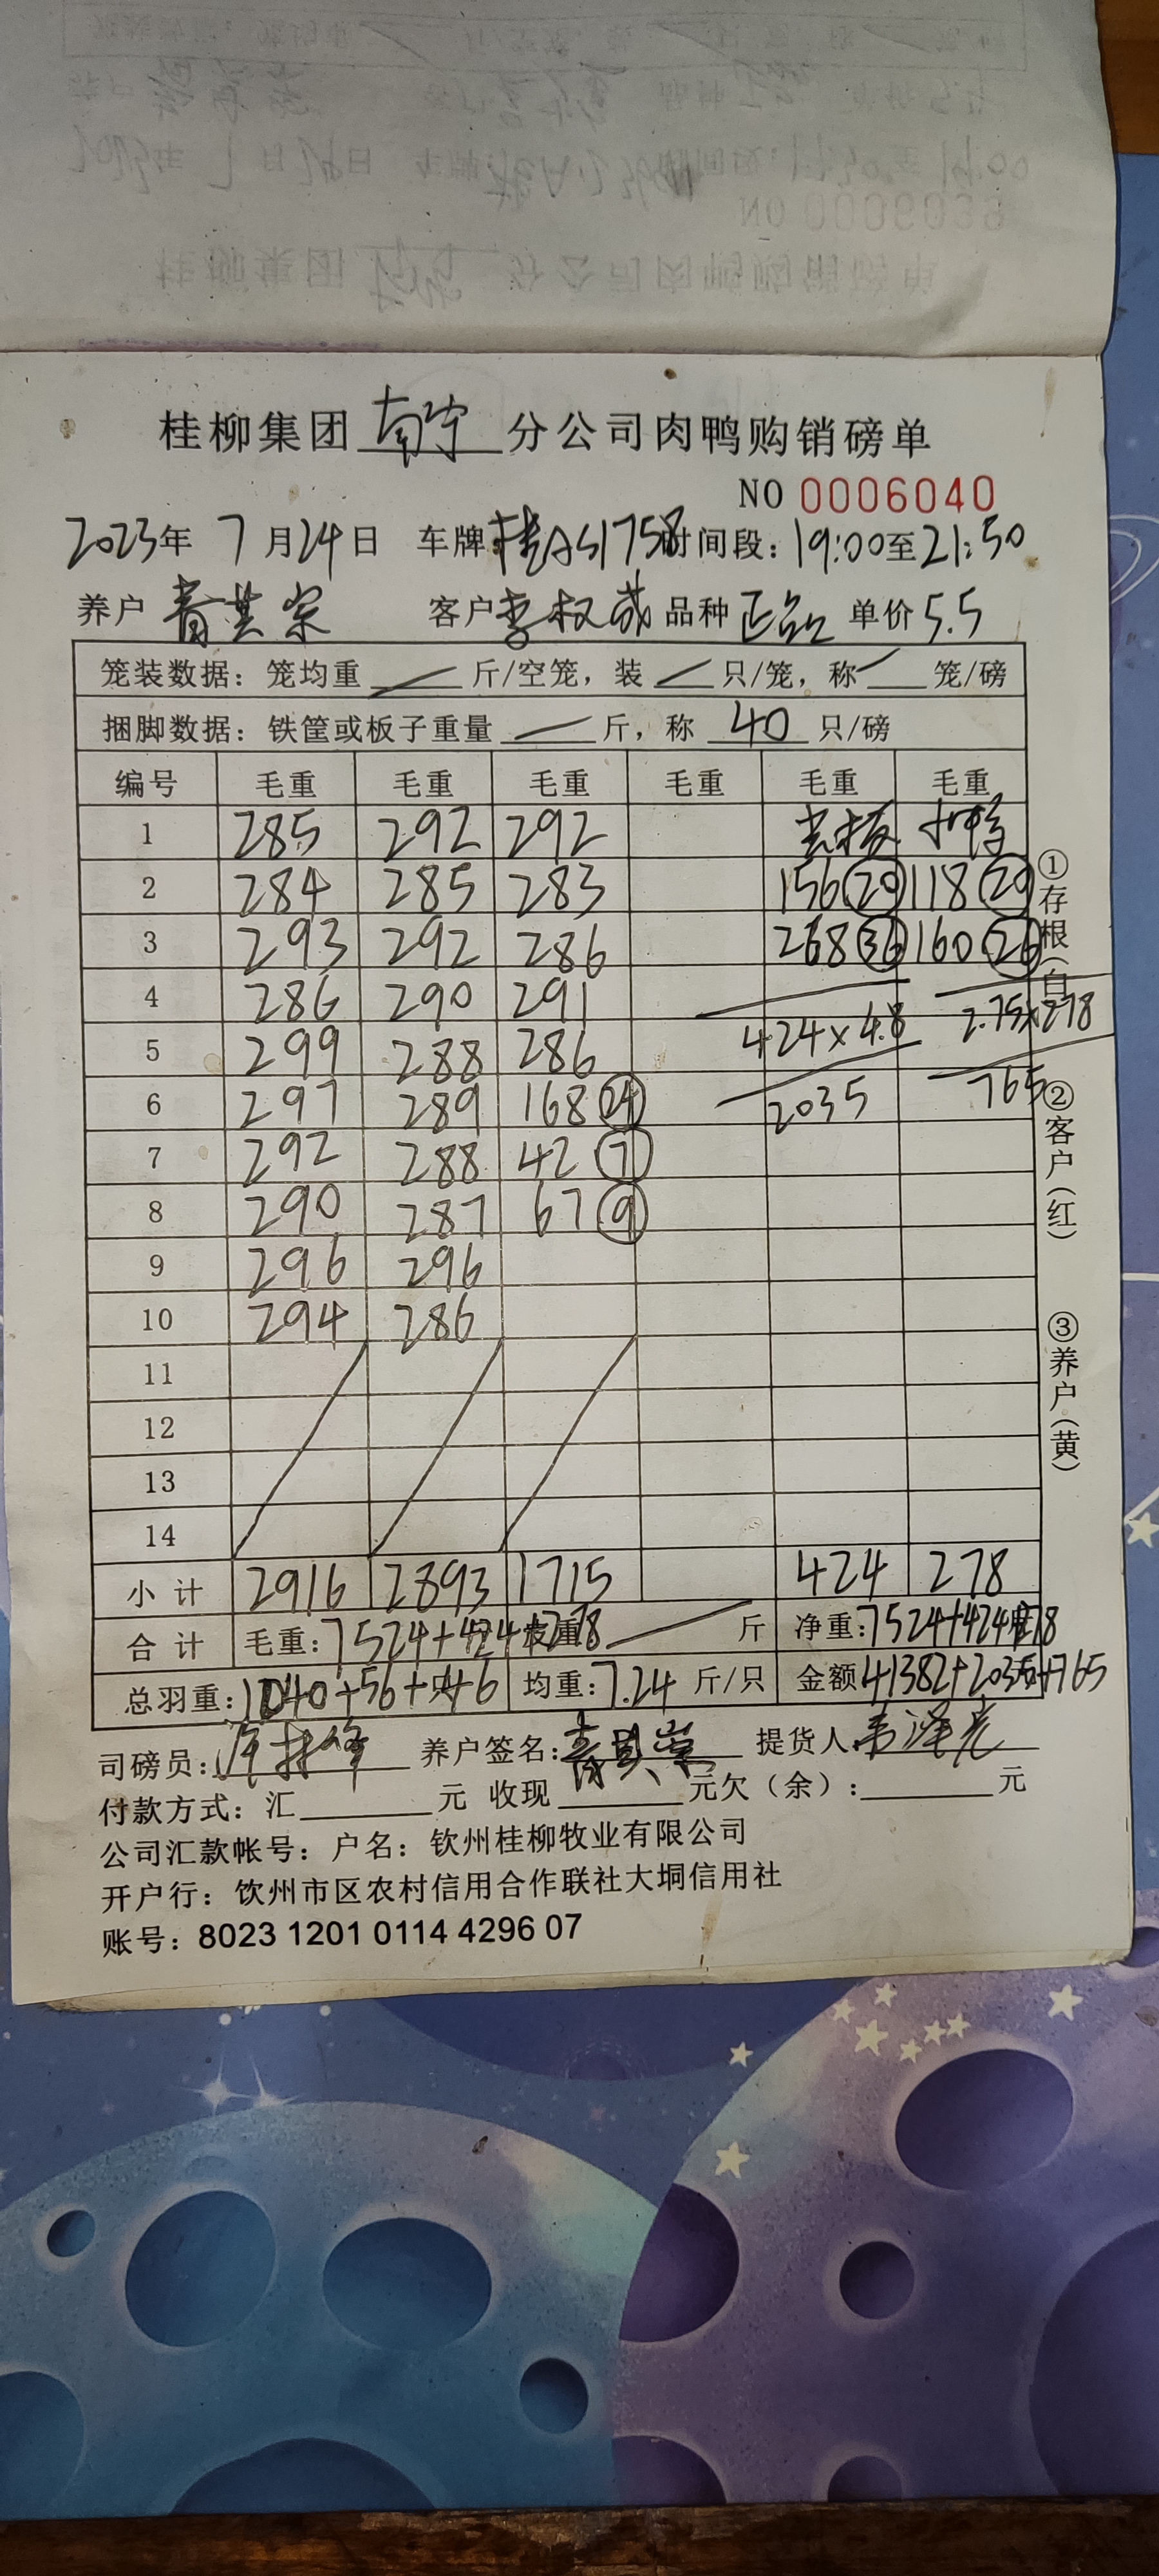 桂柳集团 南宁 分公司肉鸭购销磅单
NO 0006040
2023年 7月24日 车牌:桂AS1758 时间段: 19:00至21:50
养户 客户 李权成 品种 正品 单价 5.5
笼装数据: 笼均重 斤/空笼, 装 只/笼, 称 笼/磅
捆脚数据: 铁筐或板子重量 斤, 称 40 只/磅
编号 毛重 毛重 毛重 毛重 毛重 毛重
1 285 292 292
2 284 285 283 156 (20) 118 (20)
3 293 292 286 268 (36) 160 (26)
4 286 290 291
5 299 288 286 424×4.8 2.75×278
6 297 289 168 (24) 2035 765
7 292 288 42 (7)
8 290 287 67 (9)
9 296 296
10 294 286
11
12
13
14
小计 2916 2893 1715 424 278
合计 毛重: 7524+424+278 斤 净重: 7524+424+278
总羽重: 1040+56+46 均重: 7.24 斤/只 金额 41382+2035+765
司磅员: 养户签名: 提货人:
付款方式: 汇 元 收现 元欠(余): 元
公司汇款帐号: 户名: 钦州桂柳牧业有限公司
开户行: 饮州市区农村信用合作联社大垌信用社
账号: 8023 1201 0114 4296 07
①存根(白)
②客户(红)
③养户(黄)